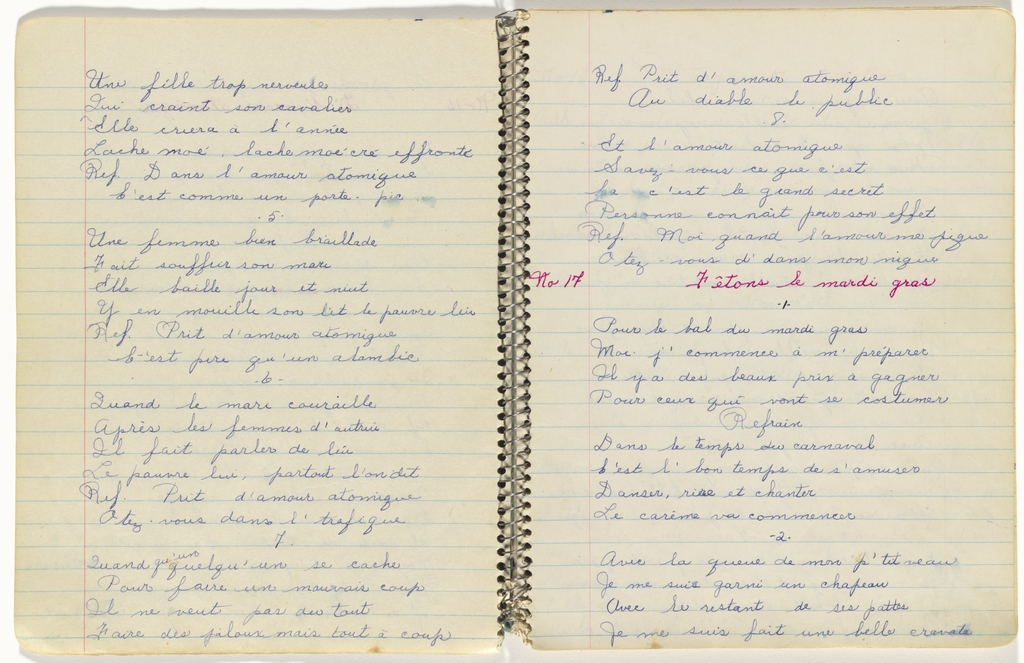 Une fille trop nerveuse
Qui craint son cavalier
Elle criera à l'année
Lache moé, lache moé cré effronté
Ref. Dans l'amour atomique
C'est comme un porte-pic
.5.
Une femme bien braillade
Fait souffrir son mari
Elle baille jour et nuit
Y en mouille son lit le pauvre lui
Ref. Prit d'amour atomique
C'est pire qu'un alambic
-6-
Quand le mari couraille
Après les femmes d'autrui
Il fait parler de lui
Le pauvre lui, partout l'on dit
Ref. Prit d'amour atomique
Otez-vous dans l'trafique
7.
Quand qu'un quelqu'un se cache
Pour faire un mauvais coup
Il ne veut pas du tout
Faire des jaloux mais tout à coup
Ref Prit d'amour atomique
Au diable le public
.8.
Et l'amour atomique
Savez-vous ce que c'est
La c'est le grand secret
Personne connait pour son effet
Ref. Moi quand l'amour me pique
Otez-vous d'dans mon nique
No 17 Fêtons le mardi gras
-1-
Pour le bal du mardi gras
Moi j'commence à m'préparer
Il y a des beaux prix à gagner
Pour ceux qui vont se costumer
Refrain
Dans le temps du carnaval
C'est l'bon temps de s'amuser
Danser, rire et chanter
Le carême va commencer
-2-
Avec la queue de mon p'tit veau
Je me suis garni un chapeau
Avec le restant de ses pattes
Je me suis fait une belle cravate